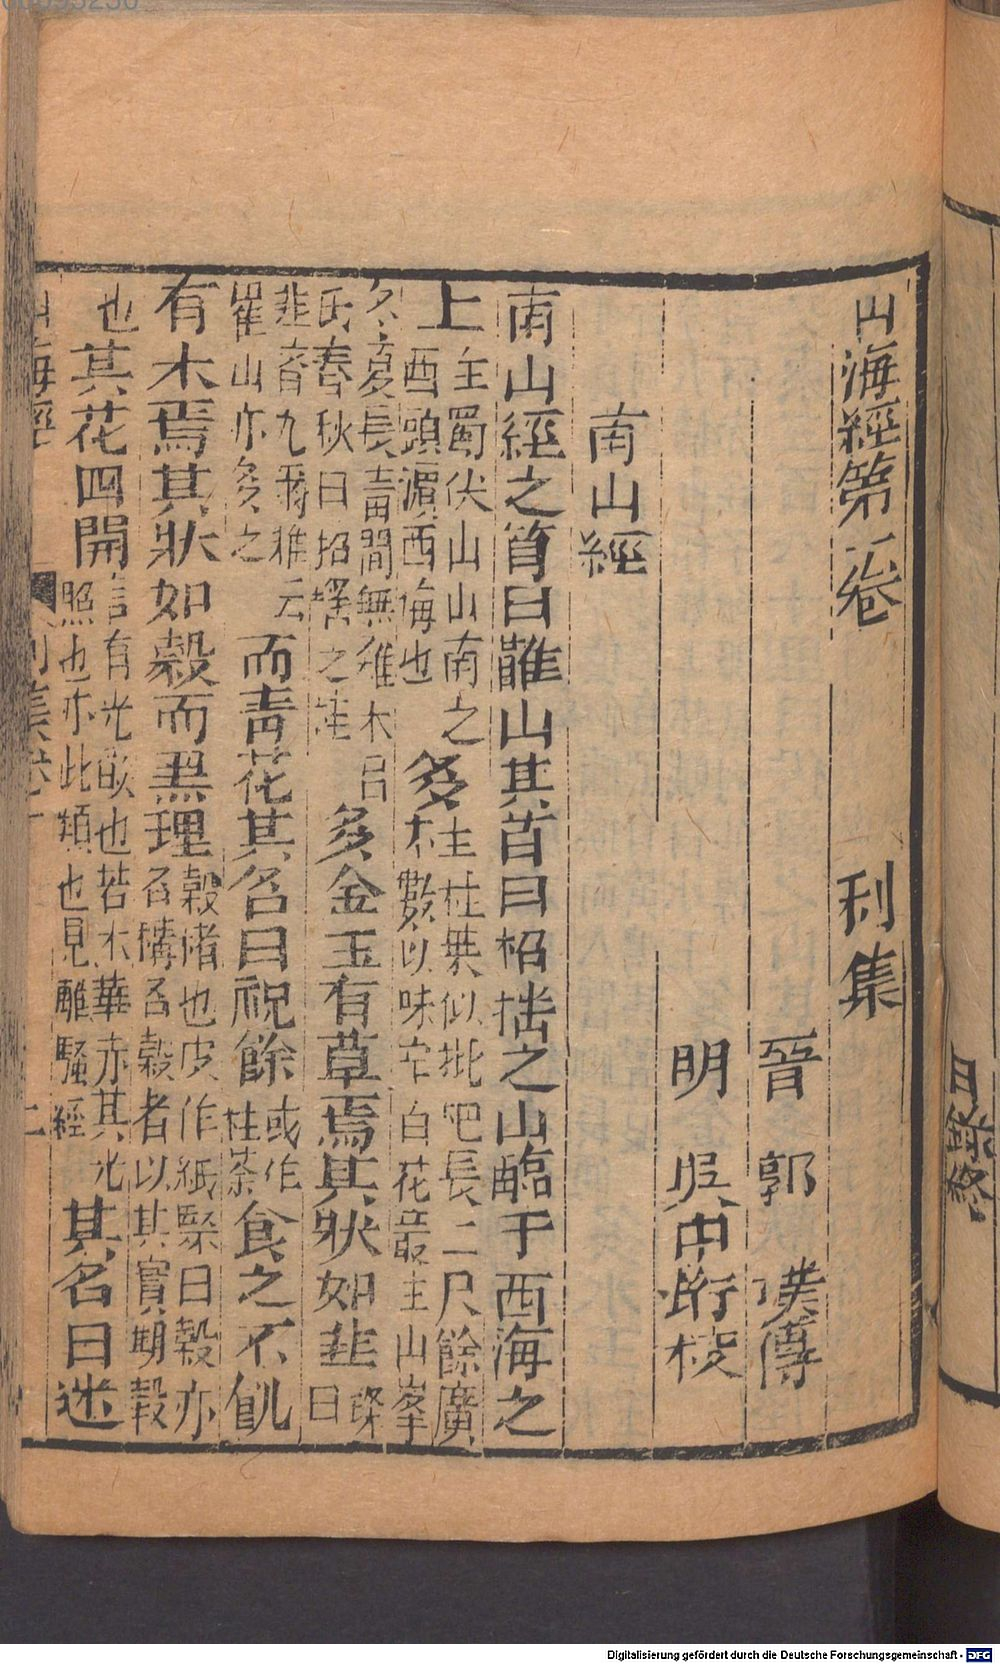 山海經第一卷 利集
晉 郭 璞傳
明 吳中珩校
南山經
南山經之首曰䧿山其首曰招搖之山臨于西海之
上 在蜀伏山山南之
西頭濱西海也
多 桂 桂葉似枇杷長二尺餘廣
數以味辛白花叢生山峯
冬夏長青間無雜木呂
氏春秋曰招搖之桂
多金玉有草焉其狀如韭 璨曰
韭音九爾雅云
霍山亦多之
而青花其名曰祝餘 或作
桂荼
食之不飢
有木焉其狀如穀而黑理 穀楮也皮作紙璨曰穀亦
名構名穀者以其實期穀
也其花四開 言有光燄也若木華赤其光
照也亦此類也見離騷經
其名曰迷
山海經 利集卷一 二
目錄終
Digitalisierung gefördert durch die Deutsche Forschungsgemeinschaft - DFG